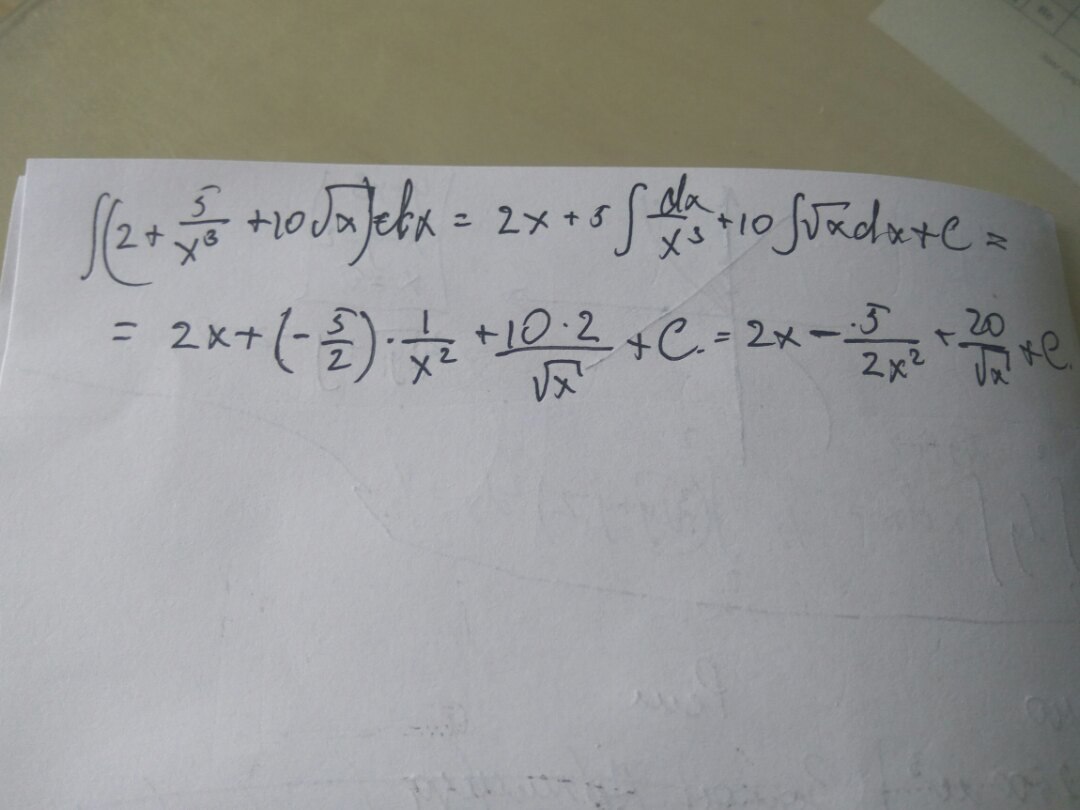 ∫(2 + 5/x³ + 10√x)dx = 2x + 5∫dx/x³ + 10∫√x dx + C =
= 2x + (-5/2) · 1/x² + 10·2/√x + C. = 2x - 5/2x² + 20/√x + C.